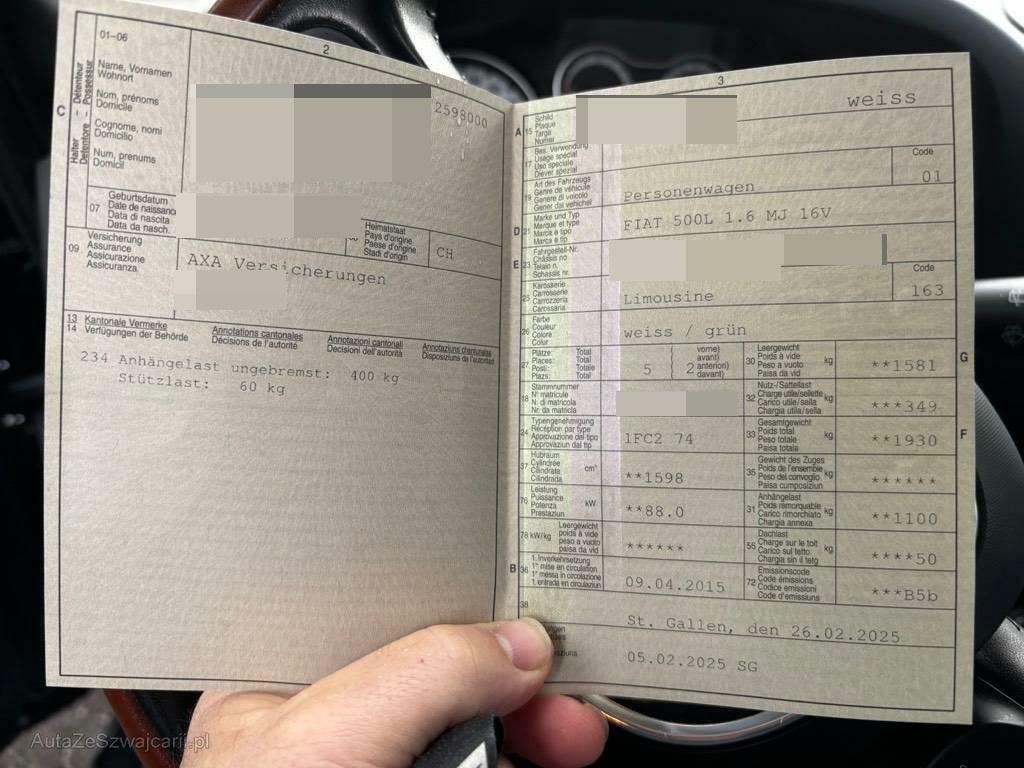 2
01-06
C
Halter - Détenteur
Detentore - Possessur
Name, Vornamen
Wohnort
Nom, prénoms
Domicile
Cognome, nomi
Domicilio
Num, prenums
Domicil
2598000
07
Geburtsdatum
Date de naissanc
Data di nascita
Data da nasch.
Heimatstaat
Pays d'origine
Paese d'origine
Stadi d'origin
CH
09
Versicherung
Assurance
Assicurazione
Assicuranza
AXA Versicherungen
13 Kantonale Vermerke
14 Verfügungen der Behörde
Annotations cantonales
Décisions de l'autorité
Annotazioni cantonali
Decisioni dell'autorità
Annotaziuns chantunalas
Disposiziuns da l'autoritad
234 Anhängelast ungebremst: 400 kg
Stützlast: 60 kg
3
A
15
Schild
Plaque
Targa
Numer
weiss
17
Bes. Verwendung
Usage spécial
Uso speciale
Diever spezial
Code
01
19
Art des Fahrzeugs
Genre de véhicule
Genere di veicolo
Gener dal vehichel
Personenwagen
D
21
Marke und Typ
Marque et type
Marca e tipo
Marca e tip
FIAT 500L 1.6 MJ 16V
E
23
Fahrgestell-Nr.
Châssis no
Telaio n.
Schassis nr.
25
Karosserie
Carrosserie
Carrozzeria
Carossaria
Limousine
Code
163
26
Farbe
Couleur
Colore
Colur
weiss / grün
27
Plätze: Total
Places: Total
Posti: Totale
Plazs: Total
5
2
vorne)
avant)
anteriori)
davant)
30
Leergewicht
Poids à vide
Peso a vuoto
Paisa da vid
kg
**1581
G
18
Stammnummer
N° matricule
N. di matricola
Nr. da matricla
32
Nutz-/Sattellast
Charge utile/sellette
Carico utile/sella
Chargia utila/sella
kg
***349
24
Typengenehmigung
Réception par type
Approvazione del tipo
Approvaziun dal tip
1FC2 74
33
Gesamtgewicht
Poids total
Peso totale
Paisa totala
kg
**1930
F
37
Hubraum
Cylindrée
Cilindrata
Cilindrada
cm³
**1598
35
Gewicht des Zuges
Poids de l'ensemble
Peso del convoglio
Paisa cumposiziun
kg
******
76
Leistung
Puissance
Potenza
Prestaziun
kW
**88.0
31
Anhängelast
Poids remorquable
Carico rimorchiato
Chargia annexa
kg
**1100
78 kW/kg
Leergewicht
poids à vide
peso a vuoto
paisa da vid
******
55
Dachlast
Charge sur le toit
Carico sul tetto
Chargia sin il tetg
kg
****50
B
36
1. Inverkehrsetzung
1re mise en circulation
1a messa in circolazione
1. entrada en circulaziun
09.04.2015
72
Emissionscode
Code émissions
Codice emissioni
Code d'emissiuns
***B5b
38
St. Gallen, den 26.02.2025
05.02.2025 SG
AutaZeSzwajcarii.pl